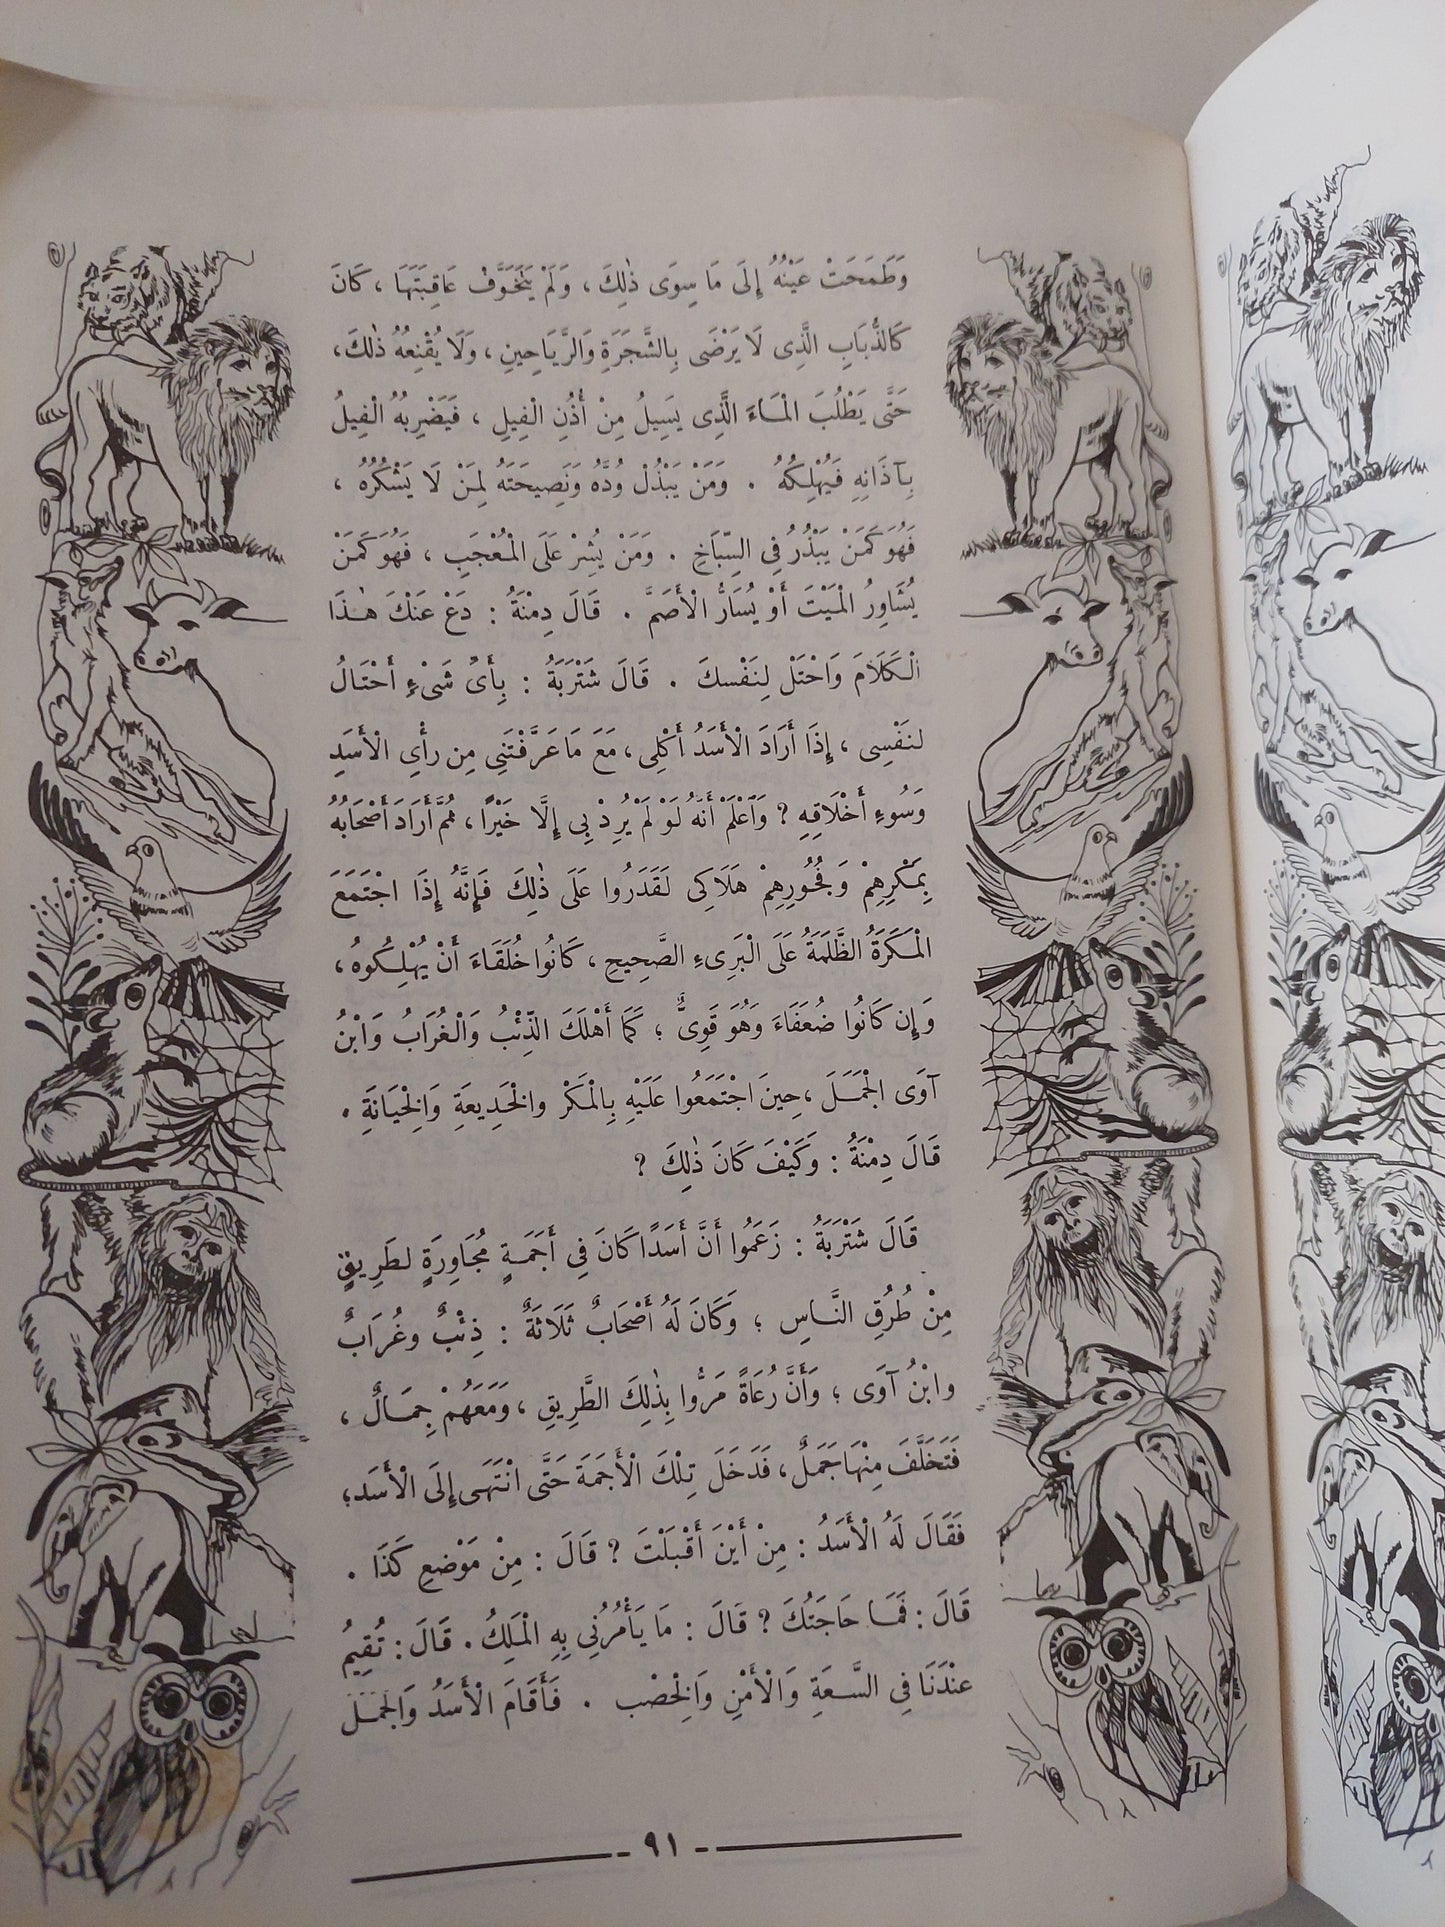 وَطَمَحَتْ عَيْنُهُ إِلَى مَا سِوَى ذٰلِكَ ، وَلَمْ يَتَخَوَّفْ عَاقِبَتَهَا ، كَانَ
كَالذُّبَابِ الَّذِى لَا يَرْضَى بِالشَّجَرَةِ وَالرَّيَاحِينِ ، وَلَا يُقْنِعهُ ذٰلكَ ،
حَتَّى يَطْلُبَ الْمَاءَ الَّذِى يَسِيلُ مِنْ أُذُنِ الْفِيلِ ، فَيَضْرِبُهُ الْفِيلُ
بِآذَانِهِ فَيُهْلِكُهُ . وَمَنْ يَبْذُلْ وُدَّهُ وَنَصِيحَتَهُ لِمَنْ لَا يَشْكُرُهُ ،
فَهُوَ كَمَنْ يَبْذُرُ فِى السِّبَاخِ . وَمَنْ يُشِرْ عَلَى الْمُعْجَبِ ، فَهُوَ كَمَنْ
يُشَاوِرُ الْمَيْتَ أَوْ يُسَارُّ الْأَصَمَّ . قَالَ دِمْنَةُ : دَعْ عَنْكَ هٰذَا
الْكَلَامَ وَاحْتَلْ لِنَفْسكَ . قَالَ شَتْرَبَةُ : بِأَىِّ شَىْءٍ أَحْتَالُ
لنَفْسِى ، إِذَا أَرَادَ الْأَسَدُ أَكْلِى ، مَعَ مَا عَرَّفْتَنِى مِن رأْىِ الْأَسَدِ
وَسُوءِ أَخْلَاقِهِ ؟ وَاعْلَمْ أَنَّهُ لَوْ لَمْ يُرِدْ بِى إِلَّا خَيْرًا ، ثُمَّ أَرَادَ أَصْحَابُهُ
بِمَكْرِهِمْ وَفُجُورِهِمْ هَلَاكِى لَقَدَرُوا عَلَى ذٰلِكَ فَإِنَّهُ إِذَا اجْتَمَعَ
الْمَكَرَةُ الظَّلَمَةُ عَلَى الْبَرِىءِ الصَّحِيحِ ، كَانُوا خُلَقَاءَ أَنْ يُهْلِكُوهُ ،
وَإِن كَانُوا ضُعَفَاءَ وَهُوَ قَوِىٌّ ؛ كَمَا أَهْلَكَ الذِّئْبُ وَالْغُرَابُ وَابْنُ
آوَى الْجَمَلَ ، حِينَ اجْتَمَعُوا عَلَيْهِ بِالْمَكْرِ والْخَدِيعَةِ وَالْخِيَانَةِ .
قَالَ دِمْنَةُ : وَكَيْفَ كَانَ ذٰلِكَ ؟
قَالَ شَتْرَبَةُ : زَعَمُوا أَنَّ أَسَدًا كَانَ فِى أَجَمَةٍ مُجَاوِرَةٍ لطَرِيقٍ
مِنْ طُرُقِ النَّاسِ ؛ وَكَانَ لَهُ أَصْحَابٌ ثَلَاثَةٌ : ذِئْبٌ وغُرَابٌ
وابْنُ آوَى ؛ وَأَنَّ رُعَاةً مَرُّوا بِذٰلِكَ الطَّرِيقِ ، وَمَعَهُمْ جِمَالٌ ،
فَتَخَلَّفَ مِنْهَا جَمَلٌ ، فَدَخَلَ تِلْكَ الْأَجَمَةَ حَتَّى انْتَهَى إِلَى الْأَسَد ؛
فَقَالَ لَهُ الْأَسَدُ : مِنْ أَيْنَ أَقْبَلْتَ ؟ قَالَ : مِنْ مَوْضعِ كَذَا .
قَالَ : فَمَا حَاجَتُكَ ؟ قَالَ : مَا يَأْمُرُنِى بِهِ الْمَلِكُ . قَالَ : تُقِيمُ
عنْدَنَا فِى السَّعَةِ وَالْأَمْنِ وَالْخِصْب . فَأَقَامَ الْأَسَدُ وَالْجَمَلُ
- ٩١ -